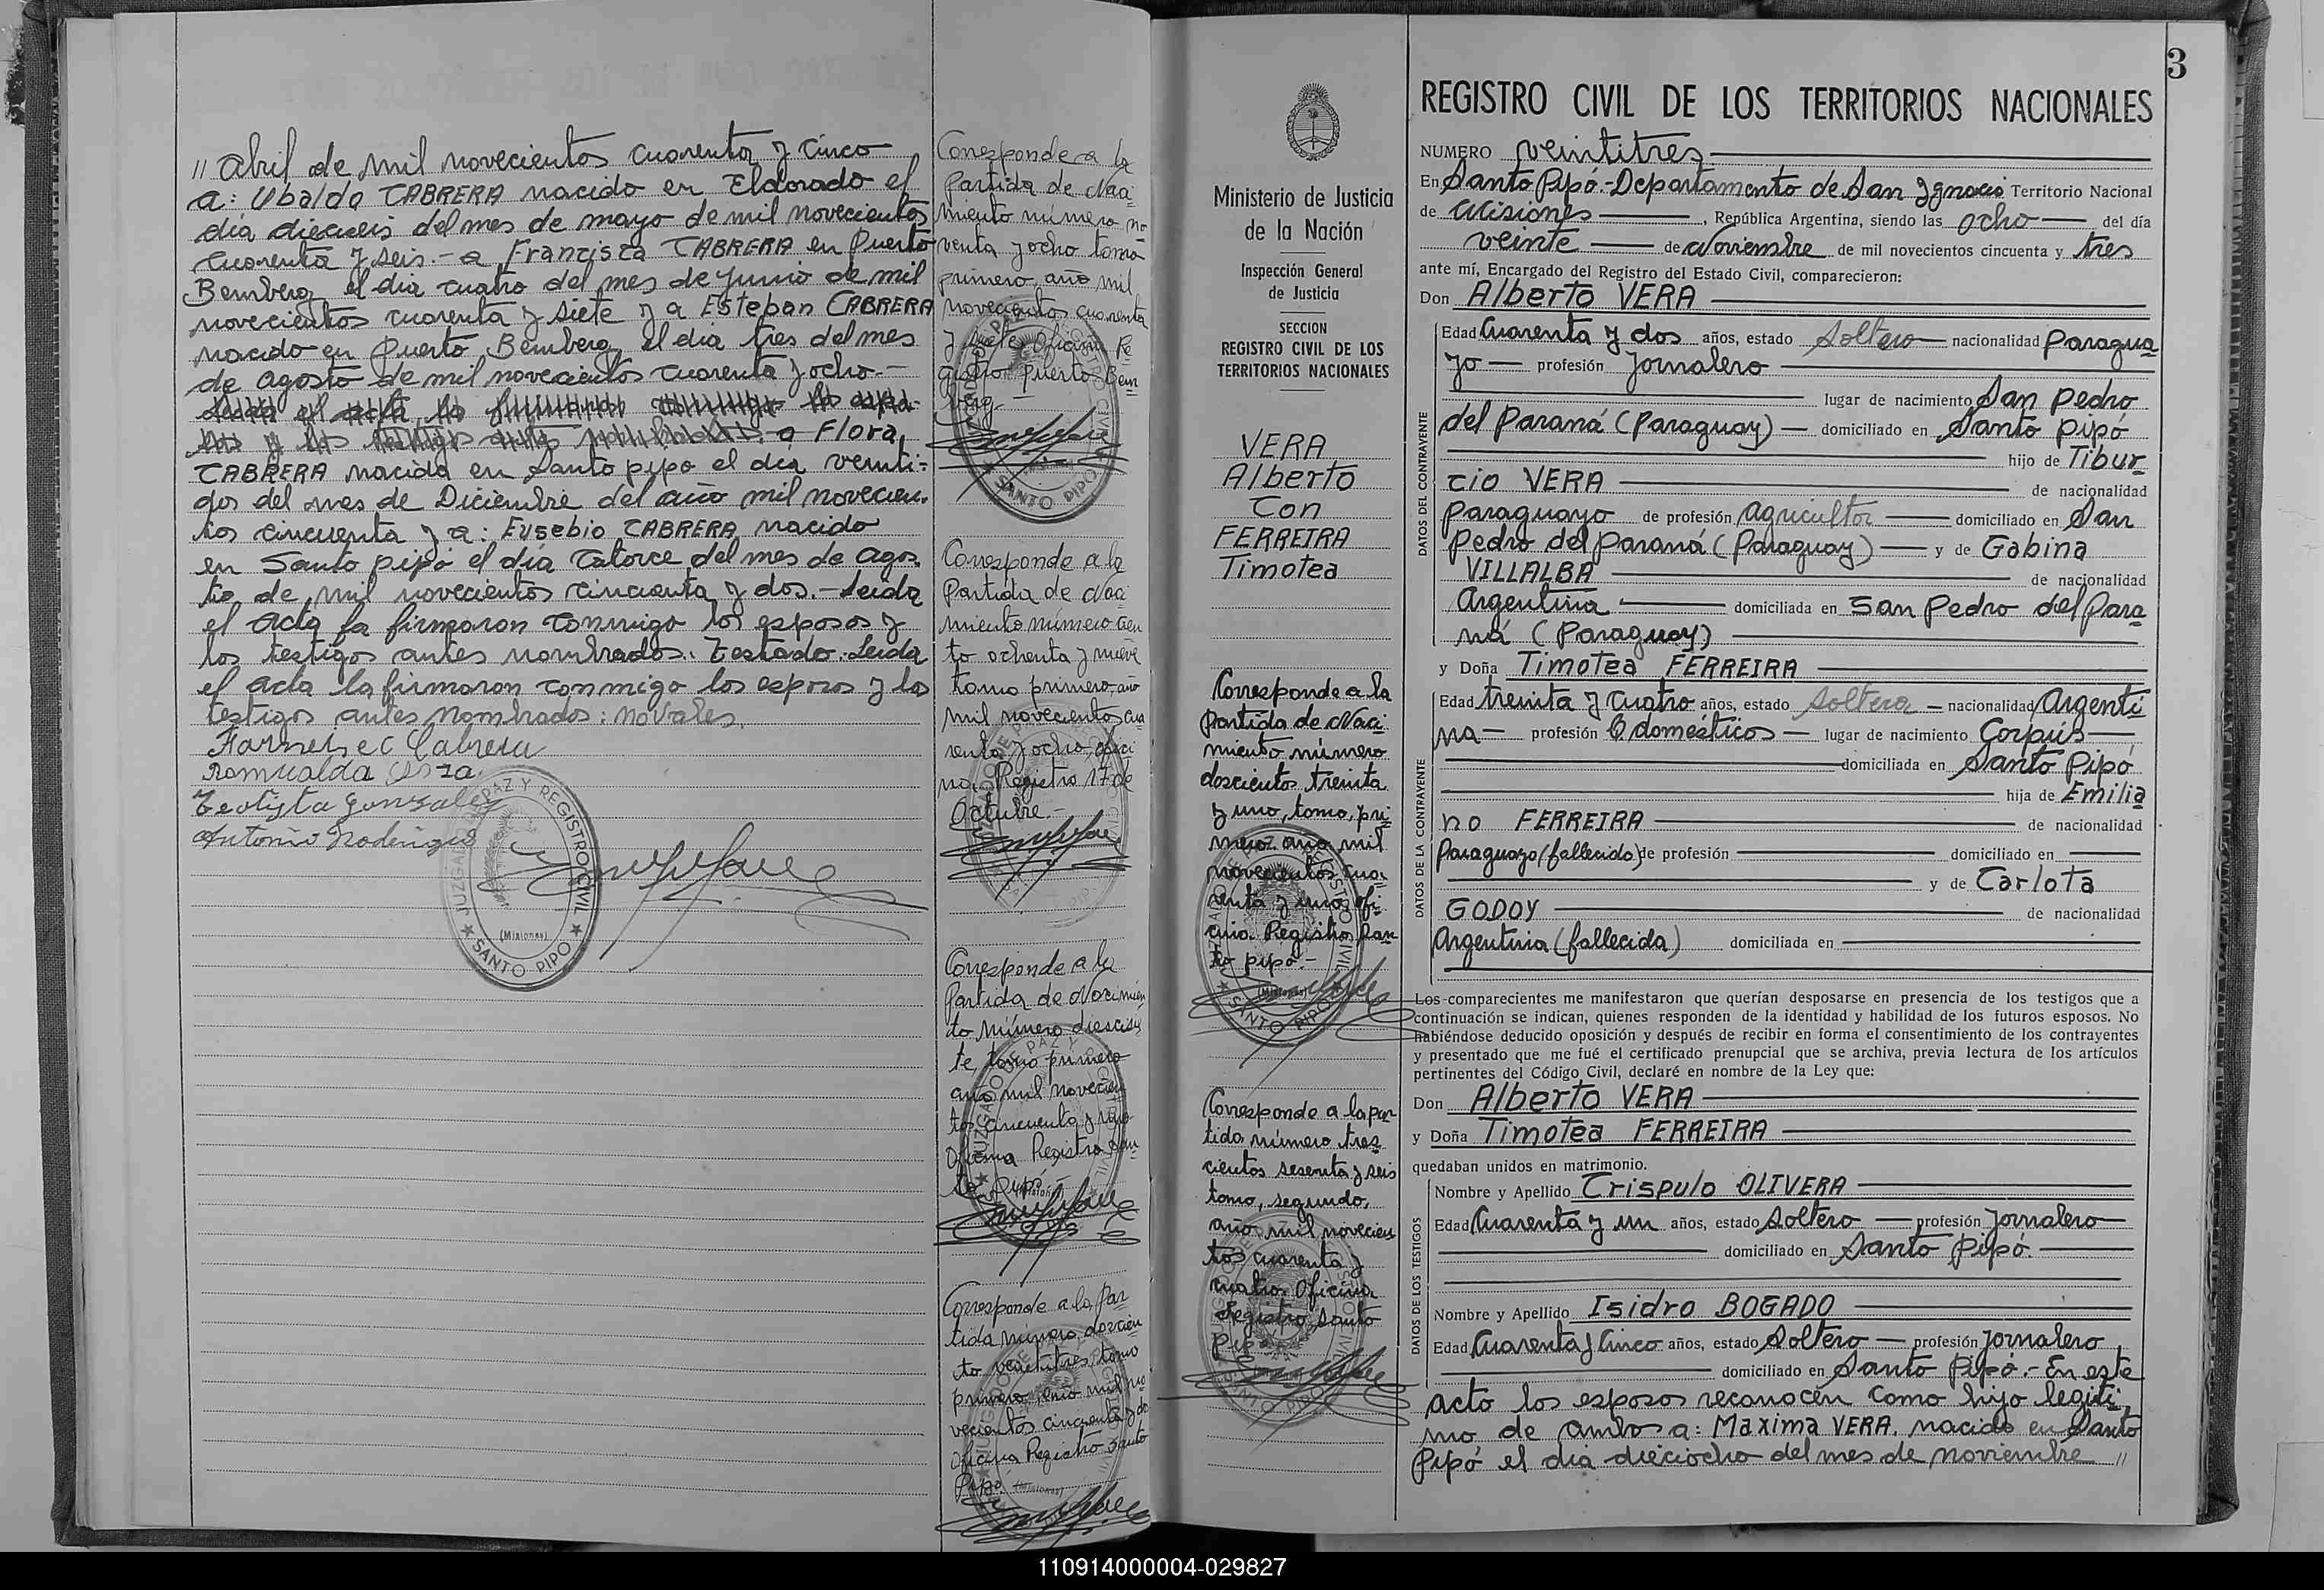 // Abril de mil novecientos cuarenta y cinco
a: Ubaldo CABRERA nacido en Eldorado el
día dieciseis del mes de mayo de mil novecientos
cuarenta y seis.- a Francisca CABRERA en Puerto
Bemberg el dia cuatro del mes de junio de mil
novecientos cuarenta y siete y a Esteban CABRERA
nacido en Puerto Bemberg el dia tres del mes
de agosto de mil novecientos cuarenta y ocho.-
a Flora
CABRERA nacida en Santo pipo el día veinti=
dos del mes de Diciembre del año mil novecien-
tos cincuenta y a: Eusebio CABRERA nacido
en Santo pipó el día catorce del mes de agos-
to de mil novecientos cincuenta y dos.- Leida
el acta la firmaron conmigo los esposos y
los testigos antes nombrados. Testado: Leida
el acta la firmaron conmigo los esposos y los
testigos antes nombrados: no vales.
Cabrera
Romualda
Teotista Gonzalez
Antonio Rodriguez
JUZGADO DE PAZ Y REGISTRO CIVIL
(Misiones)
★ SANTO PIPO ★
Corresponde a la
Partida de Naci
miento número no
venta y ocho tomo
primero, año mil
novecientos cuarenta
y siete Oficina Re
gistro Puerto Bem
berg.-
SANTO PIPO
Corresponde a la
Partida de Naci
miento número cien
to ochenta y nueve
tomo primero, año
mil novecientos cua
renta y ocho, ofici
na Registro 17 de
Octubre.-
Corresponde a la
Partida de Nacimien
to número diecisie
te, tomo primero
año mil novecien
tos cincuenta y uno
Oficina Registro San
to Pipó.-
Corresponde a la Par
tida número doscien
to veintitres, tomo
primero, año mil no
vecientos cincuenta y dos
Oficina Registro Santo
Pipó
3
Ministerio de Justicia
de la Nación
Inspección General
de Justicia
SECCION
REGISTRO CIVIL DE LOS
TERRITORIOS NACIONALES
VERA
Alberto
Con
FERREIRA
Timotea
Corresponde a la
partida de Naci
miento número
doscientos treinta
y uno, tomo, pri
mero. año mil
novecientos cua-
renta y uno, ofi-
cina. Registro San
to pipó.-
Corresponde a la par
tida número tres
cientos sesenta y seis
tomo, segundo,
año, mil novecien
tos cuarenta y
cuatro. Oficina
Registro Santo
Pipó.-
REGISTRO CIVIL DE LOS TERRITORIOS NACIONALES
NUMERO veintitres
En Santo Pipó.-Departamento de San Ignacio Territorio Nacional
de Misiones, República Argentina, siendo las ocho del día
veinte de Noviembre de mil novecientos cincuenta y tres
ante mí, Encargado del Registro del Estado Civil, comparecieron:
Don Alberto VERA
DATOS DEL CONTRAYENTE
Edad Cuarenta y dos años, estado Soltero nacionalidad paragua
yo profesión Jornalero
lugar de nacimiento San Pedro
del Paraná (Paraguay) domiciliado en Santo Pipó
hijo de Tibur
cio VERA de nacionalidad
paraguayo de profesión Agricultor domiciliado en San
Pedro del Paraná (Paraguay) y de Gabina
VILLALBA de nacionalidad
Argentina domiciliada en San Pedro del Para
ná (Paraguay)
y Doña Timotea FERREIRA
DATOS DE LA CONTRAYENTE
Edad treinta y cuatro años, estado Soltera nacionalidad Argenti
na profesión Q domésticos lugar de nacimiento Corpus
domiciliada en Santo Pipó
hija de Emilia
no FERREIRA de nacionalidad
Paraguayo (fallecido) de profesión domiciliado en
y de Carlota
GODOY de nacionalidad
Argentina (fallecida) domiciliada en
Los comparecientes me manifestaron que querían desposarse en presencia de los testigos que a
continuación se indican, quienes responden de la identidad y habilidad de los futuros esposos. No
habiéndose deducido oposición y después de recibir en forma el consentimiento de los contrayentes
y presentado que me fué el certificado prenupcial que se archiva, previa lectura de los artículos
pertinentes del Código Civil, declaré en nombre de la Ley que:
Don Alberto VERA
y Doña Timotea FERREIRA
quedaban unidos en matrimonio.
DATOS DE LOS TESTIGOS
Nombre y Apellido Crispulo OLIVERA
Edad Cuarenta y un años, estado Soltero profesión Jornalero
domiciliado en Santo Pipó.
Nombre y Apellido Isidro BOGADO
Edad Cuarenta y Cinco años, estado Soltero profesión Jornalero
domiciliado en Santo Pipó.- En este
acto los esposos reconocen como hijo legiti
mo de ambos a: Maxima VERA. nacido en Santo
Pipó el dia dieciocho del mes de noviembre //
110914000004-029827